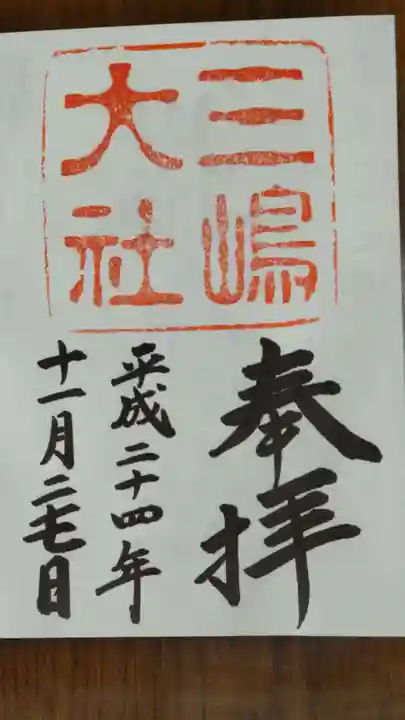 三嶋
大社
奉拝
平成二十四年
十一月二七日